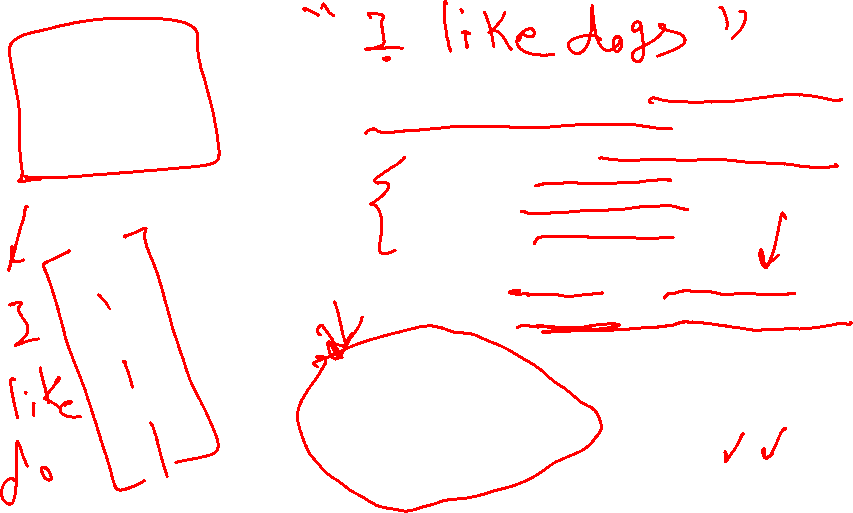 "I like dogs"
I
like
do